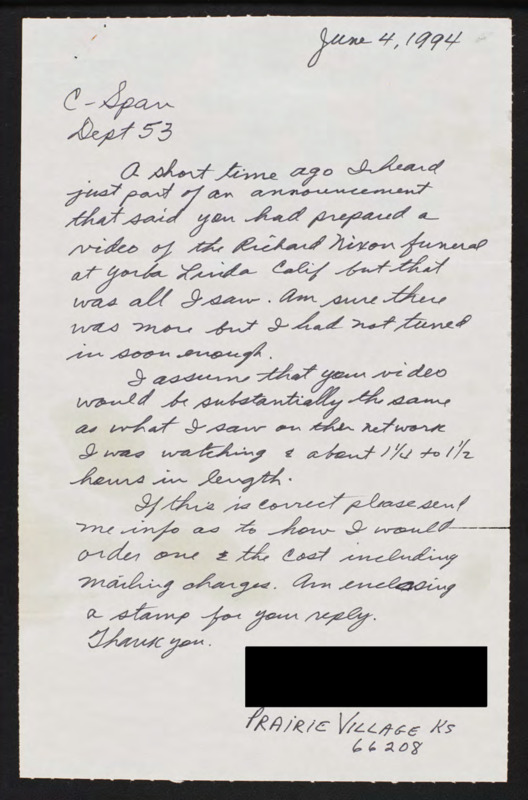 June 4, 1994
C-Span
Dept 53
A short time ago I heard
just part of an announcement
that said you had prepared a
video of the Richard Nixon funeral
at Yorba Linda Calif but that
was all I saw. Am sure there
was more but I had not tuned
in soon enough.
I assume that your video
would be substantially the same
as what I saw on the network
I was watching & about 1 1/4 to 1 1/2
hours in length.
If this is correct please send
me info as to how I would
order one & the cost including
mailing charges. Am enclosing
a stamp for your reply.
Thank you.
PRAIRIE VILLAGE KS
66208